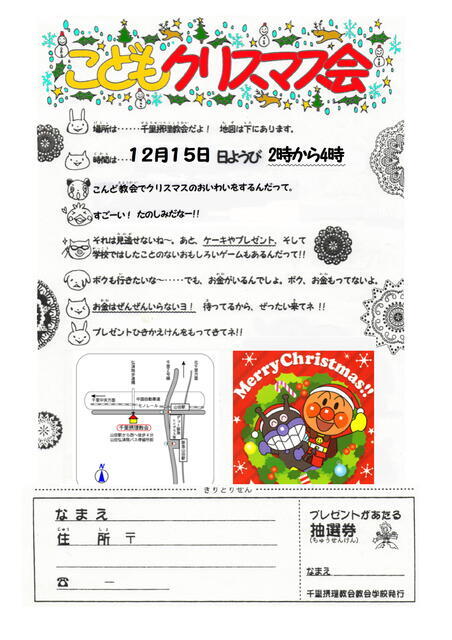 こどもクリスマス会
場所は……千里摂理教会だよ! 地図は下にあります。
時間は…12月15日 日ようび 2時から4時
こんど教会でクリスマスのおいわいをするんだって。
すごーい! たのしみだなー!!
それは見逃せないね〜。あと、ケーキやプレゼント、そして
学校ではしたことのないおもしろいゲームもあるんだって!!
ボクも行きたいな〜……でも、お金がいるんでしょ。ボク、お金もってないよ。
お金はぜんぜんいらないヨ! 待ってるから、ぜったい来てネ!!
プレゼントひきかえけんをもってきてネ!!
中国自動車道
モノレール
山田駅
千里摂理教会
N
Merry Christmas!!
きりとりせん
なまえ
住所 〒
☎ ー
プレゼントがあたる
抽選券
(ちゅうせんけん)
なまえ
千里摂理教会教会学校発行